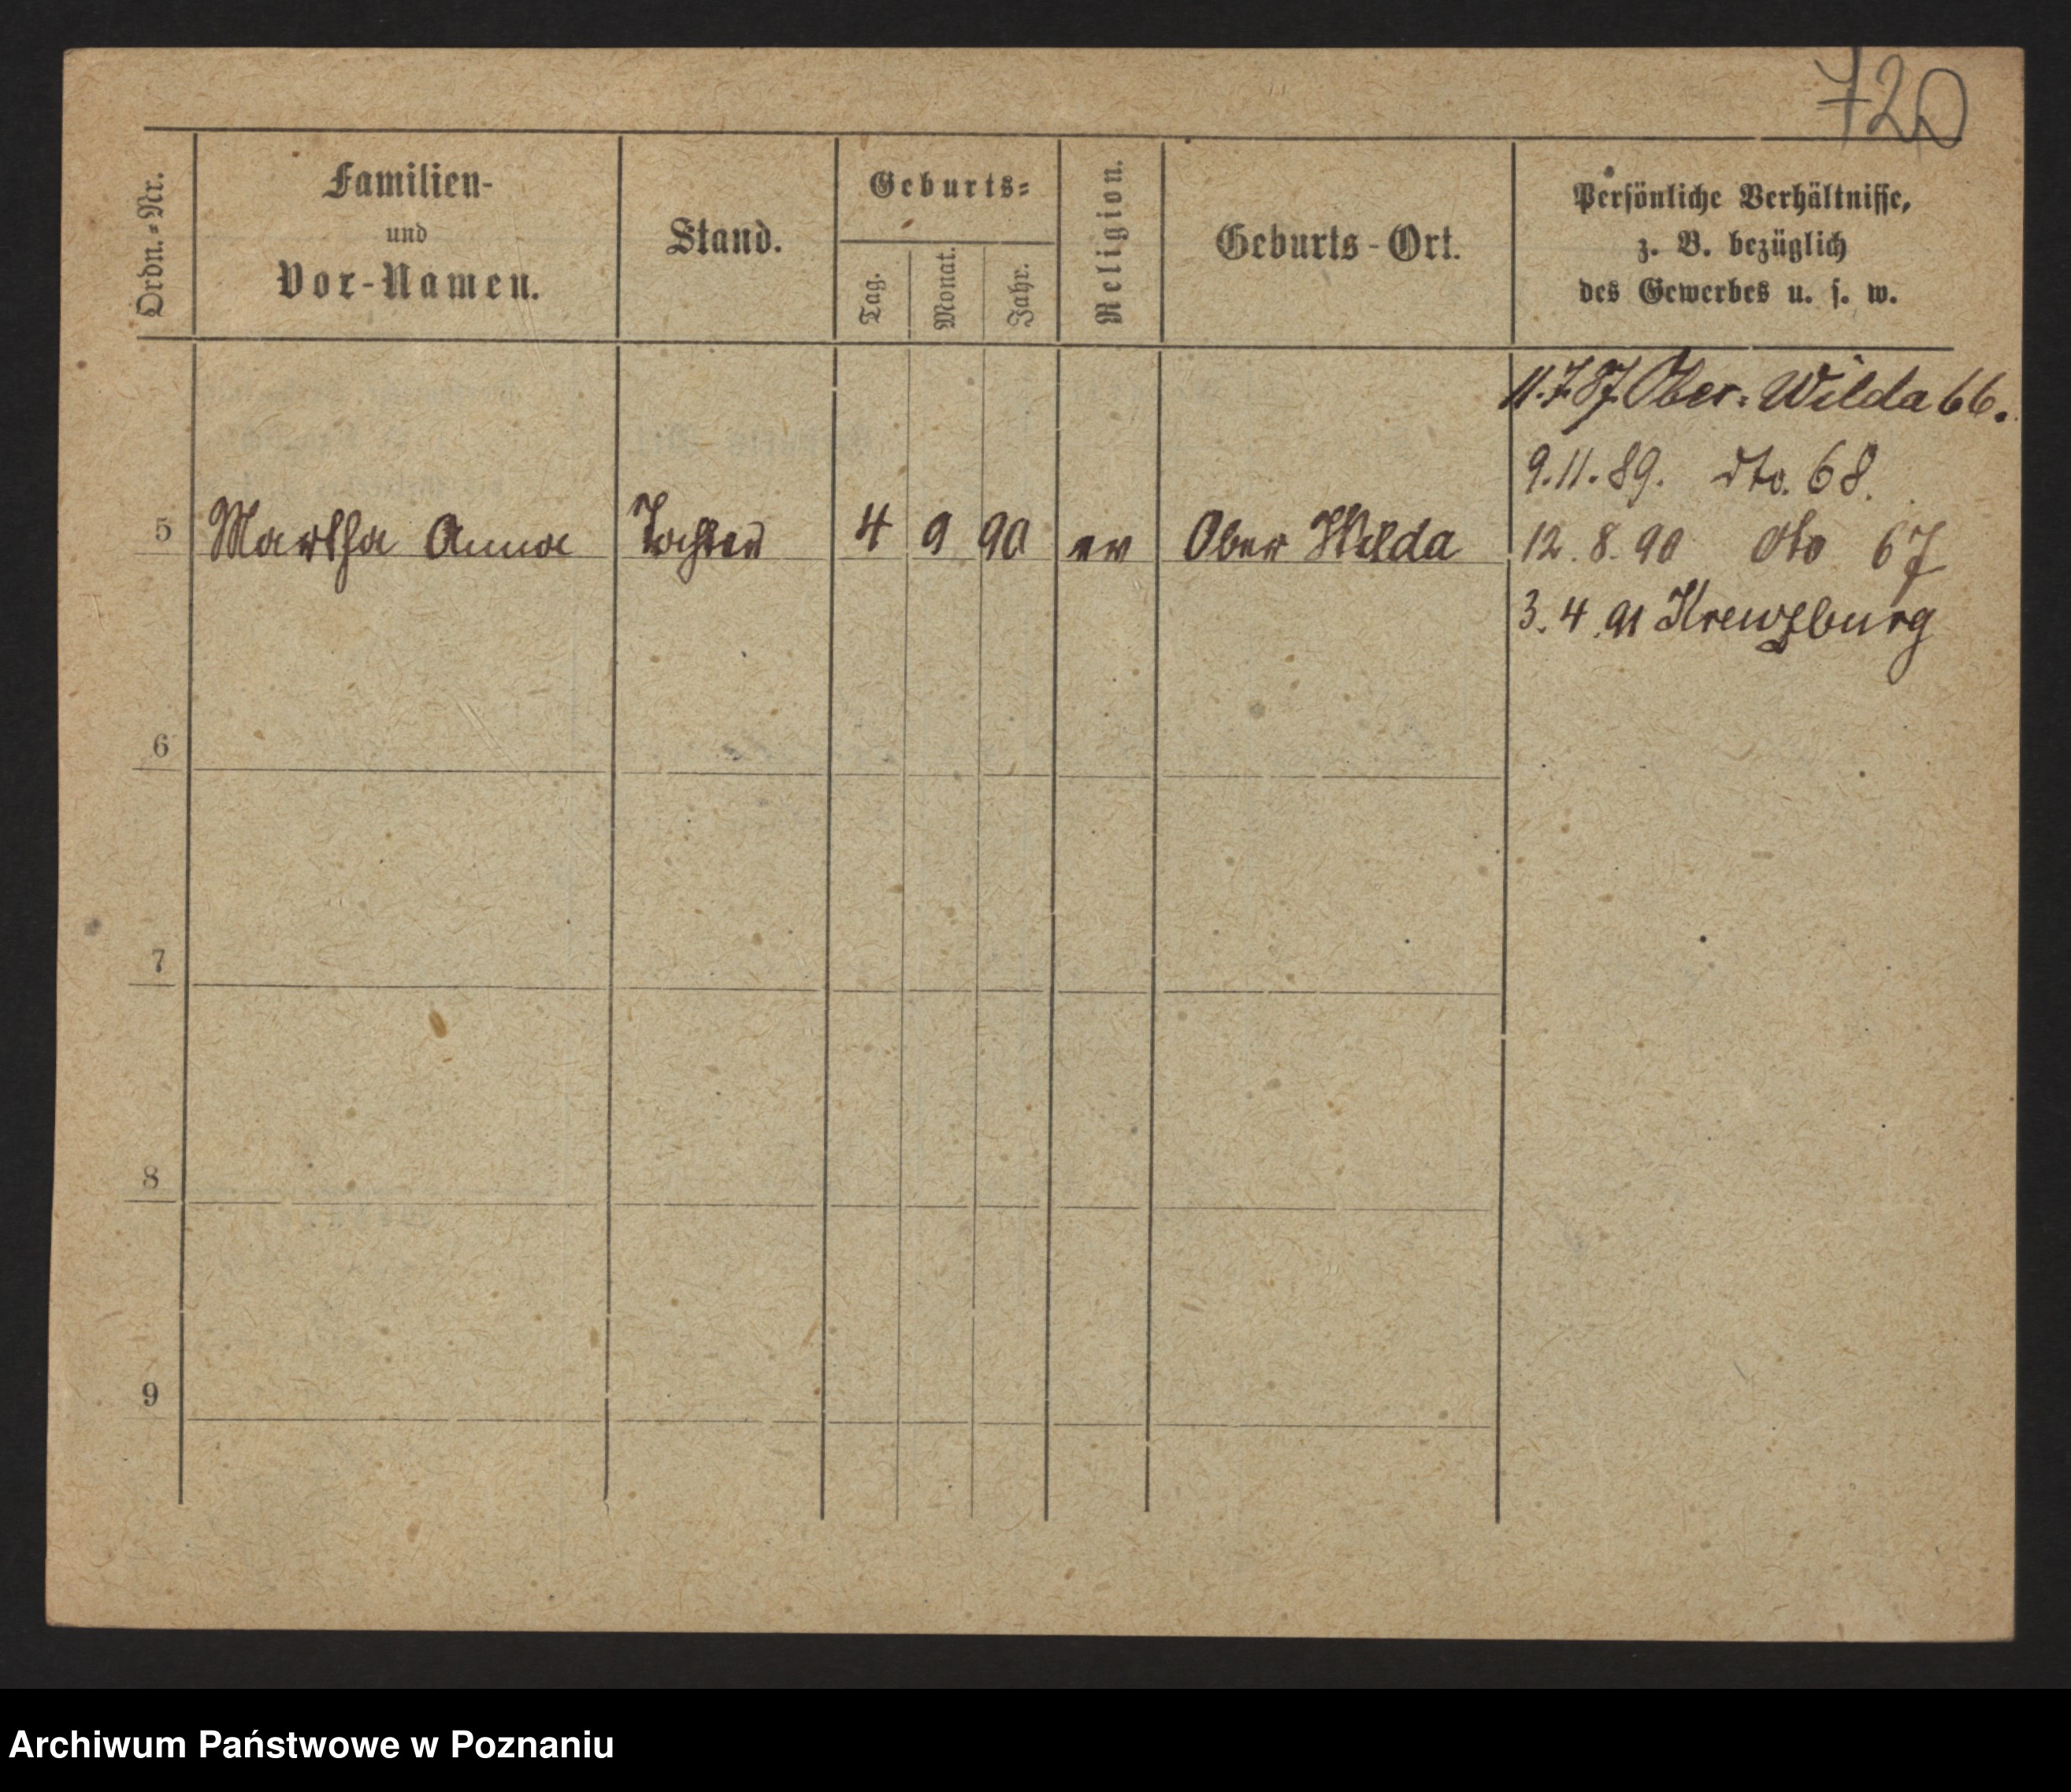 720
Ordn.-Nr.
Familien-
und
Vor-Namen.
Stand.
Geburts-
Tag.
Monat.
Jahr.
Religion.
Geburts-Ort.
Persönliche Verhältnisse,
z. B. bezüglich
des Gewerbes u. s. w.
11.7.87. Ober-Wilda 66.
9.11.89. dto. 68.
5 Martha Anna Tochter 4 9 90 ev Ober Wilda
12.8.90 dto 67
3.4.91 Kreuzburg
6
7
8
9
Archiwum Państwowe w Poznaniu